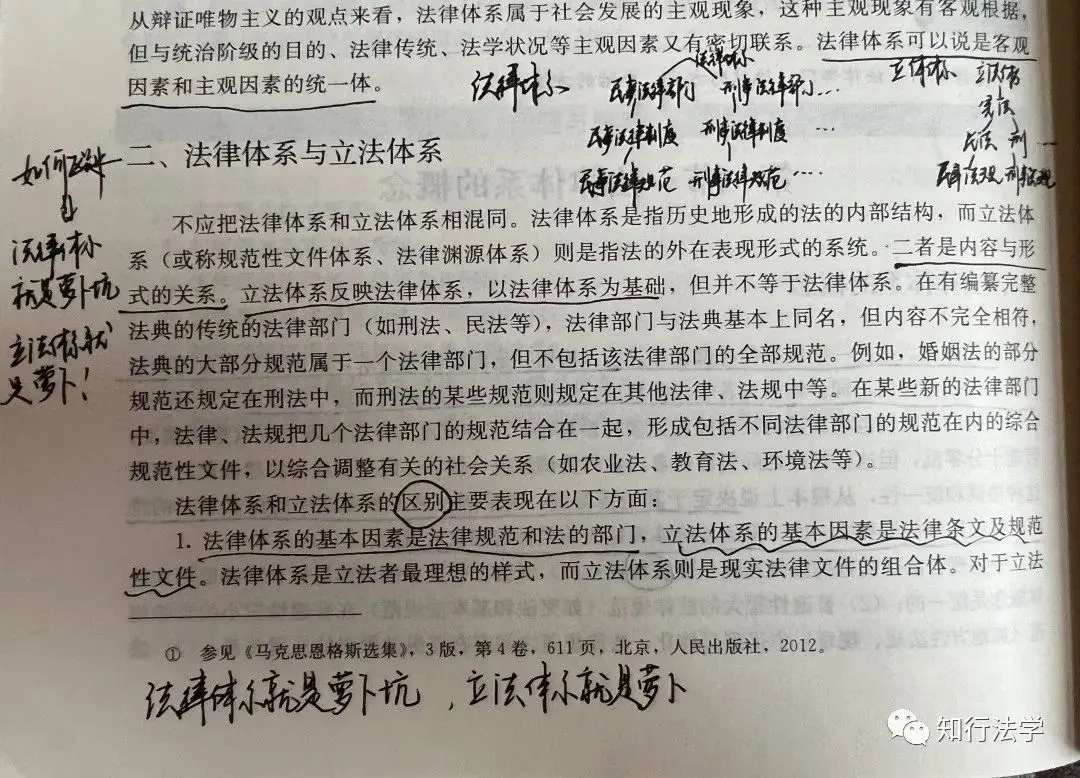 从辩证唯物主义的观点来看，法律体系属于社会发展的主观现象，这种主观现象有客观根据，
但与统治阶级的目的、法律传统、法学状况等主观因素又有密切联系。法律体系可以说是客观
因素和主观因素的统一体。
法律体系
法律体系
民事法律部门 刑事法律部门…
民事法律制度 刑事法律制度 …
民事法律规范 刑事法律规范…
立法体系
宪法
民法 刑 …
二、法律体系与立法体系
如何理解
↓
法律体系
就是萝卜坑
立法体系就
是萝卜！
不应把法律体系和立法体系相混同。法律体系是指历史地形成的法的内部结构，而立法体
系（或称规范性文件体系、法律渊源体系）则是指法的外在表现形式的系统。二者是内容与形
式的关系。立法体系反映法律体系，以法律体系为基础，但并不等于法律体系。在有编纂完整
法典的传统的法律部门（如刑法、民法等），法律部门与法典基本上同名，但内容不完全相符，
法典的大部分规范属于一个法律部门，但不包括该法律部门的全部规范。例如，婚姻法的部分
规范还规定在刑法中，而刑法的某些规范则规定在其他法律、法规中等。在某些新的法律部门
中，法律、法规把几个法律部门的规范结合在一起，形成包括不同法律部门的规范在内的综合
规范性文件，以综合调整有关的社会关系（如农业法、教育法、环境法等）。
法律体系和立法体系的区别主要表现在以下方面：
1. 法律体系的基本因素是法律规范和法的部门，立法体系的基本因素是法律条文及规范
性文件。法律体系是立法者最理想的样式，而立法体系则是现实法律文件的组合体。对于立法
① 参见《马克思恩格斯选集》，3版，第4卷，611页，北京，人民出版社，2012。
法律体系就是萝卜坑，立法体系就是萝卜
知行法学